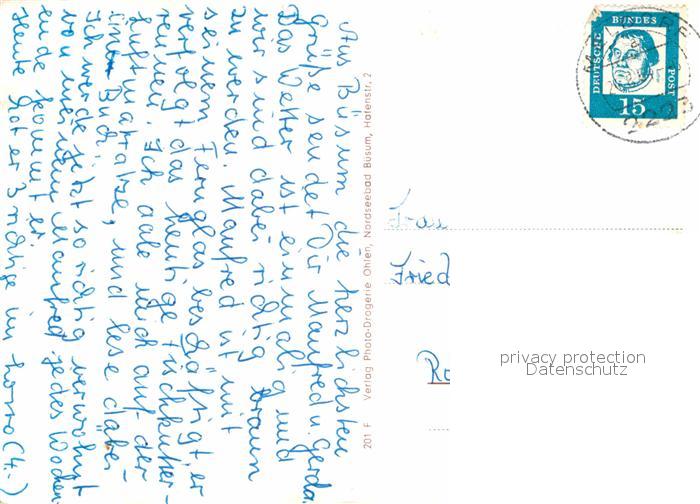 Aus Büsum die herzlichsten
Grüße sendet Dir Manfred u. Gerda.
Das Wetter ist einmalig und
wir sind dabei richtig braun
zu werden. Manfred ist mit
seinem Fernglas beschäftigt er
verfolgt das heutige Fischkutter-
rennen. Ich aale mich auf der
Luftmatratze, und lese dabei
ein Buch.
Ich werde jetzt so richtig verwöhnt
von meinem Manfred jedes Wochen-
ende kommt er.
Heute hat er 3 richtige im Lotto (4.-)
201 F Verlag Photo-Drogerie Ohlen, Nordseebad Büsum, Hafenstr. 2
DEUTSCHE BUNDES POST
15
Frau
Fried
privacy protection
Datenschutz